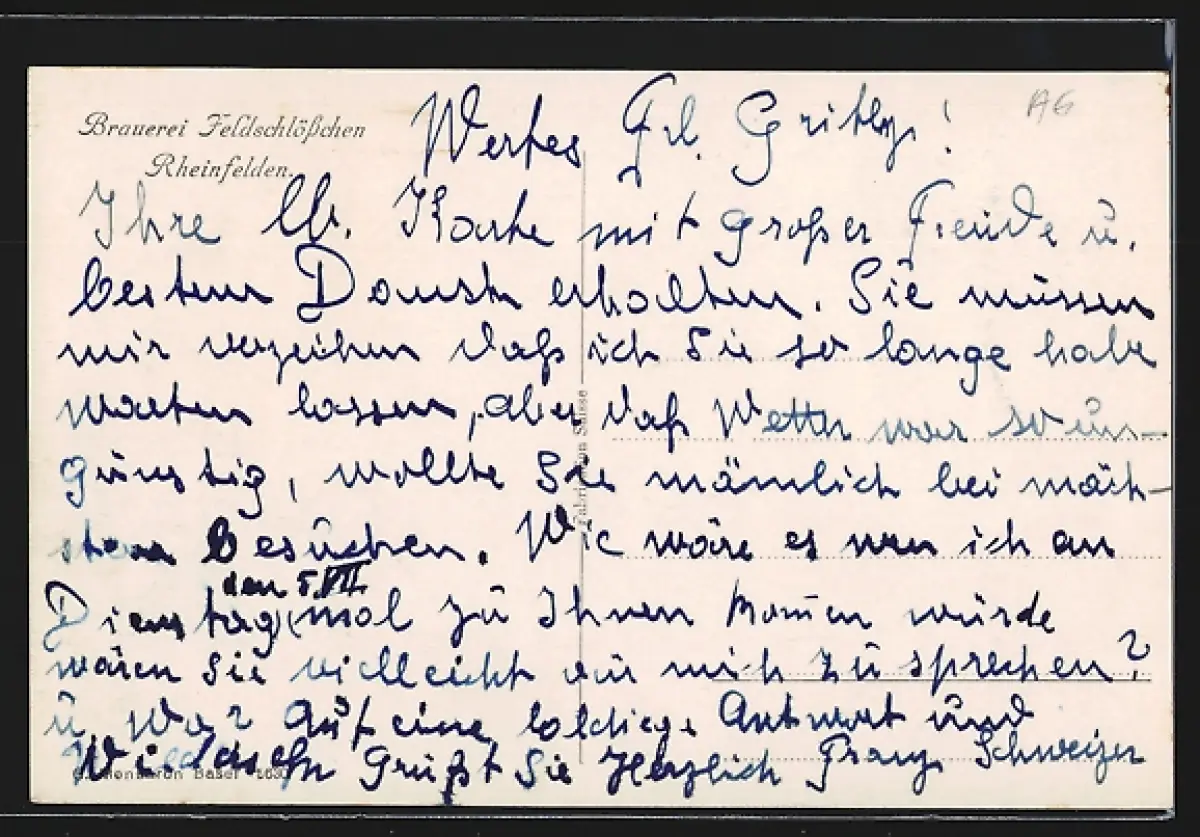 Brauerei Feldschlößchen
Rheinfelden.
AG
Wertes Frl. Gritly!
Ihre lb. Karte mit großer Freude u.
bestem Dank erhalten. Sie müssen
mir verzeihen daß ich Sie so lange habe
warten lassen, aber daß Wetter war so un-
günstig, wollte Sie nämlich bei näch-
sten Besuchen. Wie wäre es wen ich an
den 5. VII
Dienstag mal zu Ihnen kommen würde
wären Sie vielleicht für mich zu sprechen?
u. wo? Auf eine baldige Antwort und
Wiedersehn Grüßt Sie Herzlich Franz Schweizer
Fabrication Suisse
Basel